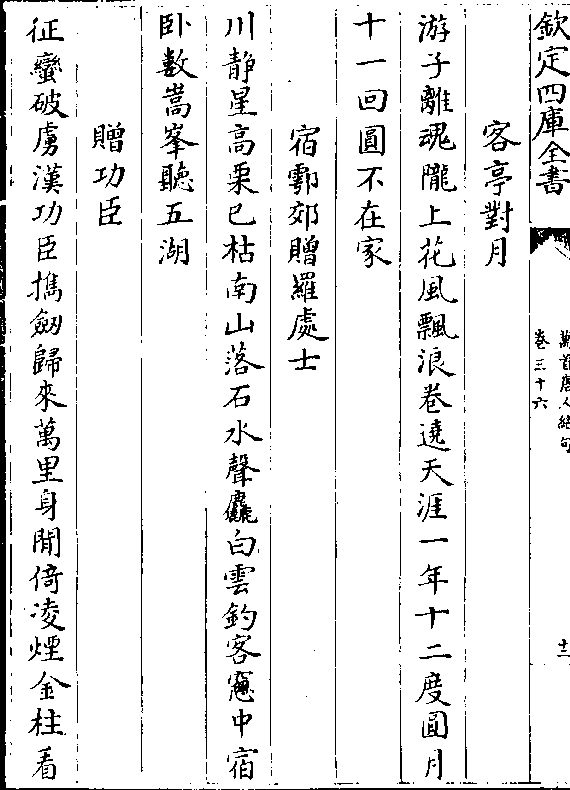 欽定四庫全書
萬首唐人絶句
卷三十六
十二
客亭對月
游子離魂隴上花風飄浪卷遶天涯一年十二度圓月
十一回圓不在家
宿鄠郊贈羅處士
川静星高栗已枯南山落石水聲麤白雲釣客窻中宿
卧數嵩峯聽五湖
贈功臣
征蠻破虜漢功臣擕劔歸來萬里身閒倚凌煙金柱看